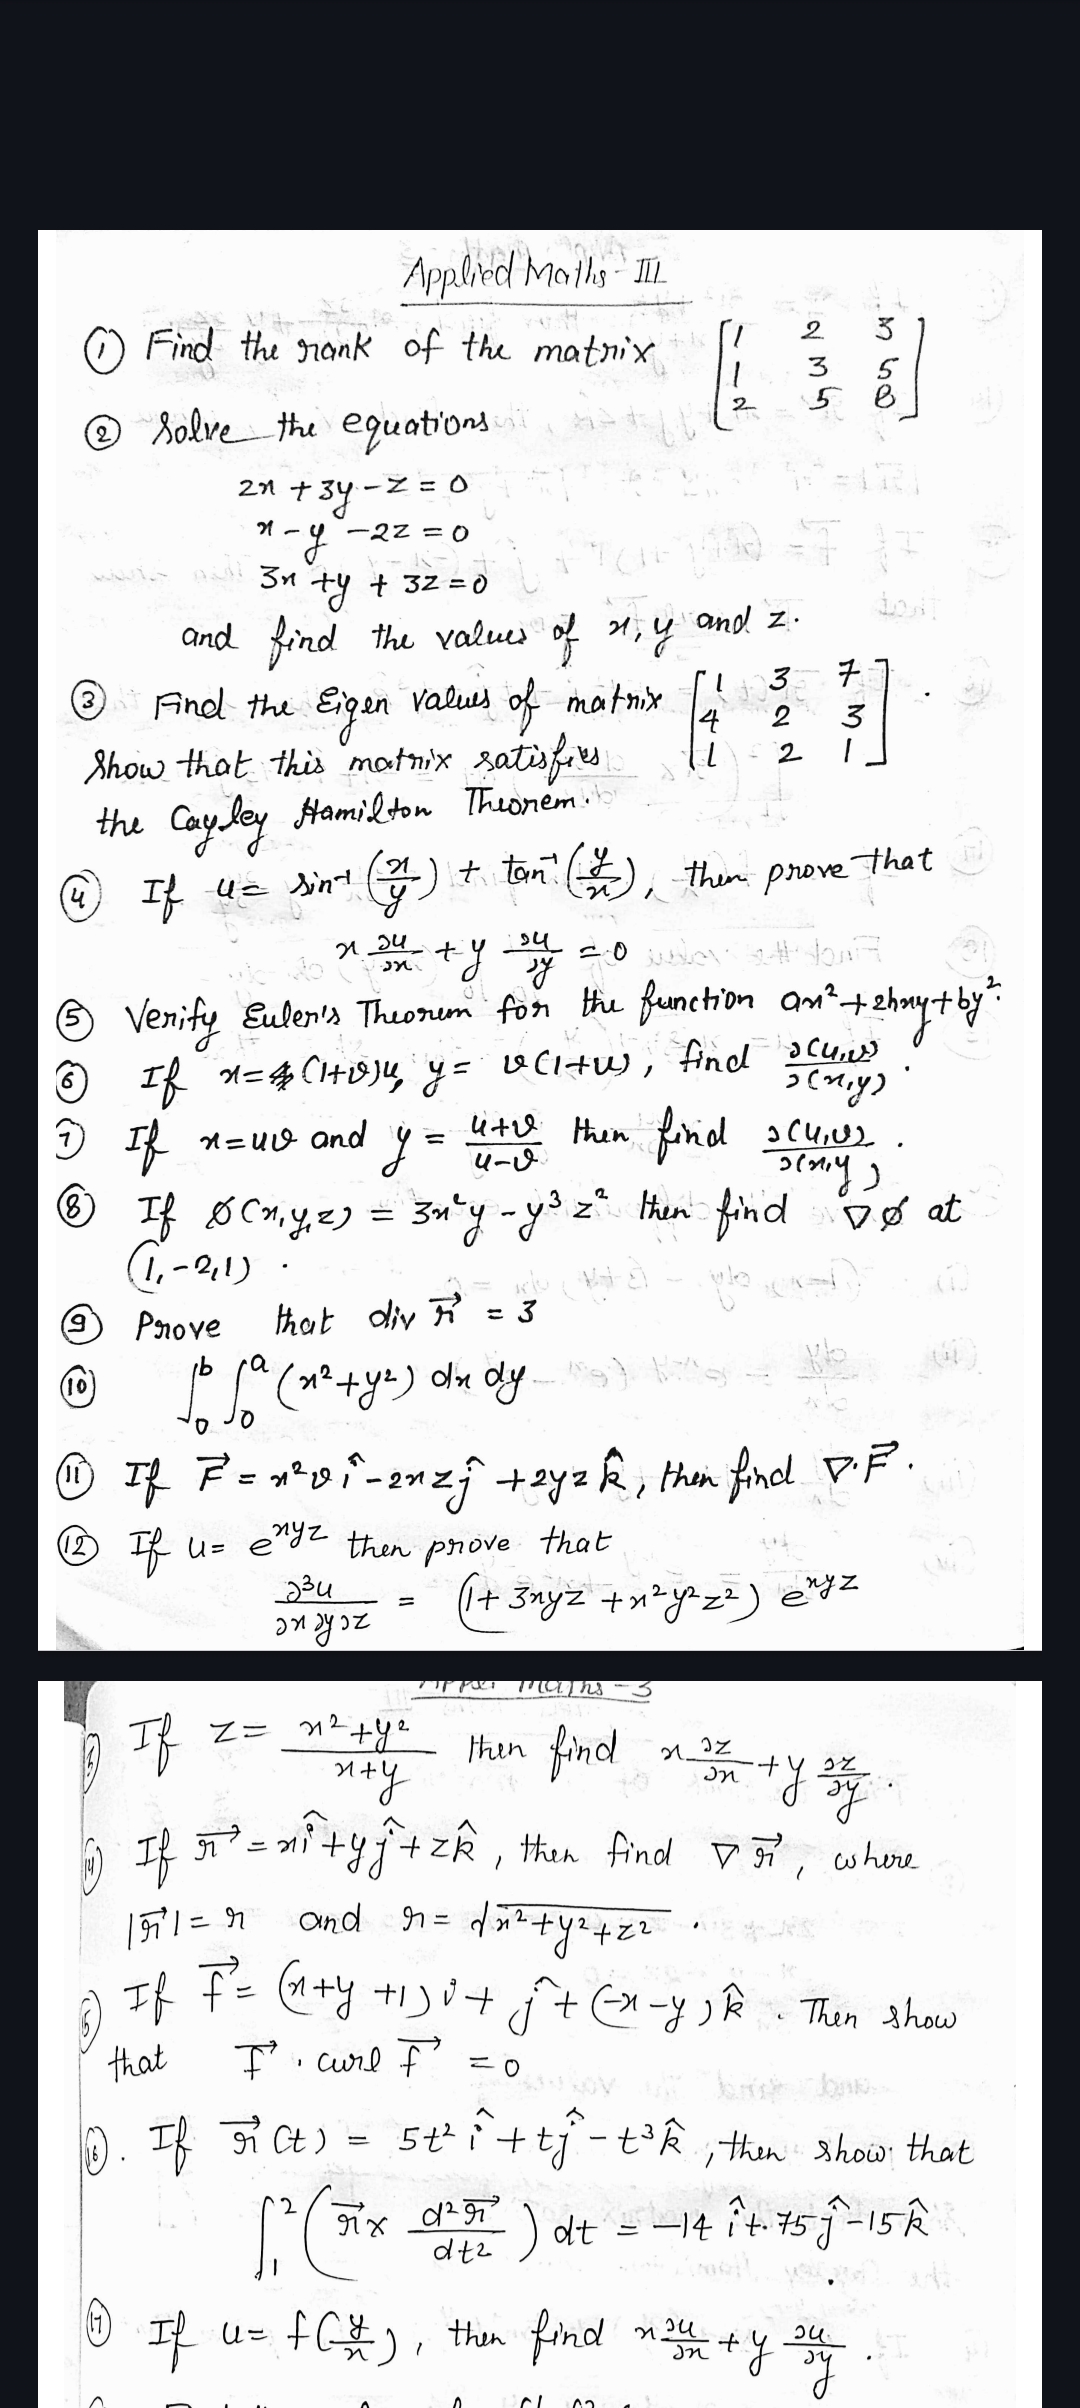 Applied Maths - III
① Find the rank of the matrix [1 2 3
1 3 5
2 5 8]
② Solve the equations
2x + 3y - z = 0
x - y - 2z = 0
3x + y + 3z = 0
and find the values of x, y and z.
③ Find the Eigen values of matrix [1 3 7
4 2 3
1 2 1].
Show that this matrix satisfies
the Cayley Hamilton Theorem.
④ If u = sin⁻¹(x/y) + tan⁻¹(y/x), then prove that
x ∂u/∂x + y ∂u/∂y = 0
⑤ Verify Euler's Theorem for the function ax² + 2hxy + by².
⑥ If x = (1+v)u, y = v(1+u), find ∂(u,v)/∂(x,y).
⑦ If x = uv and y = (u+v)/(u-v) then find ∂(u,v)/∂(x,y).
⑧ If ø(x,y,z) = 3x²y - y³z² then find ∇ø at
(1,-2,1).
⑨ Prove that div r⃗ = 3
⑩ ∫₀ᵇ ∫₀ᵃ (x²+y²) dx dy
⑪ If F⃗ = x²v î - 2xz ĵ + 2yz k̂, then find ∇.F⃗.
⑫ If u = e^xyz then prove that
∂³u/∂x∂y∂z = (1 + 3xyz + x²y²z²) e^xyz
Maths - 3
If z = (x²+y²)/(x+y) then find x ∂z/∂x + y ∂z/∂y.
⑭ If r⃗ = xî + yĵ + zk̂, then find ∇r⃗, where
|r⃗| = r and r = √x²+y²+z².
If f⃗ = (x+y+1)i + ĵ + (-x-y)k̂. Then show
that F⃗ . curl F⃗ = 0
⑯. If r⃗(t) = 5t² î + tĵ - t³k̂, then show that
∫₁² (r⃗ x d²r⃗/dt²) dt = -14 î + 75 ĵ - 15 k̂.
⑰ If u = f(y/x), then find x ∂u/∂x + y ∂u/∂y.